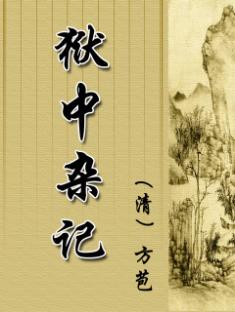 狱中杂记
（清）方苞